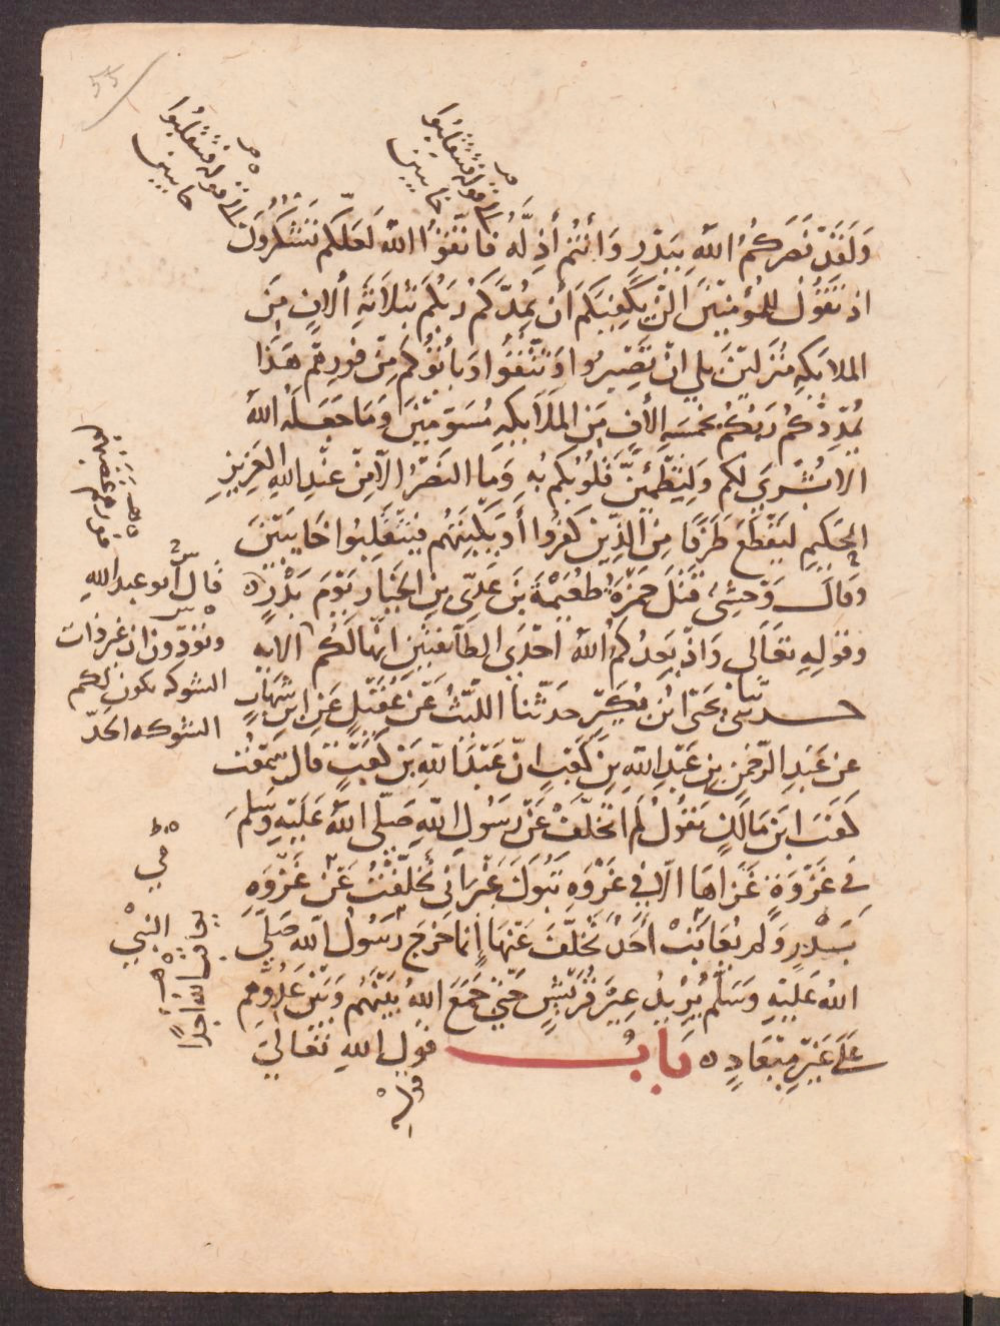 55
الى قوله فتنقلبوا
خايبين
الى قوله فتنقلبوا
خايبين
وَلَقَدْ نَصَرَكُمُ اللهُ بِبَدْرٍ وَأَنْتُمْ أَذِلَّه فَاتَّقُوا اللهَ لَعَلَّكم تَشْكُرُونَ
اذ تَقُولُ لِلمُؤمِنِينَ الَنْ يَكْفِيَكُم أَنْ يُمِدَّكُمْ رَبُّكُم بِثَلَاثَةِ ألافٍ مِنَ
الملايكهِ مُنْزَلينَ بلى انْ تَصْبِرُوا وَتَتَّقُوا وَيَأتُوكُم مِنْ فَورِهِم هَذَا
يُمدِدْكُم رَبُّكُمْ بخَمسَهِ الأفٍ مِنَ الملَايكهِ مُسَوّمِينَ وَمَا جَعَلَهُ اللهُ
الا بُشْرَى لكُم وَلِتَطْمَئِنَّ قُلُوبُكم بهِ وَما النَصْرُ الّا مِنْ عنْدِ اللهِ العَزِيزِ
الحَكيمِ ليَقْطَعَ طَرَفًا مِنَ الذِينَ كَفَرُوا أوْ يَكْبِتَهُم فيَنْقَلِبُوا خَايبينَ
وقالَ وَحْشِىٌ قَتَلَ حَمْزَةُ طُعَيْمَةَ بنَ عَدِيِّ بنِ الخيَارِ يَوْمَ بَدْرٍ ه
وقولِهِ تعَالَى وَاذْ يَعِدُكُمُ اللهُ احْدَى الطَآئفتَينِ انَّهَا لَكُم الايه
حدثنى يحَى ابنُ بُكَيرٍ حَدثَنا اللَّيثُ عَنْ عُقَيْلٍ عَنِ ابنِ شهَابٍ
عن عَبدِ الرَّحْمنِ بنِ عَبْدِ اللهِ بنِ كَعْبٍ انّ عَبْدَ اللهِ بنَ كَعْبٍ قال سَمِعْتُ
كَعْبَ ابنَ مَالكٍ يَقُولُ لَم اتَخَلّفْ عَنْ رَسُولِ اللهِ صَلّى اللهُ عَليْهِ وَسَلمَ
فى غَزْوَةٍ غَزَاهَا الّا فى غَزْوَهِ تَبُوكَ غَيْرَ انى تَخَلّفْتُ عَنْ غَزْوَهِ
بَدْرٍ وَلم يُعَاتَبْ احَدٌ تَخَلّفَ عَنْهَا إنما خَرَجَ رَسُولُ اللهِ صَلّى
اللهُ عَليْهِ وَسَلّمَ يُرِيدُ عِيرَ قُرَيْشٍ حَتّى جَمَعَ اللهُ بَيْنَهُم وَبَيْنَ عَدُوِّهِم
عَلَى غَيْرِ مِيْعَادٍ ه بَابُ قولِ اللهِ تعَالَى
قوله
فورهم غضبهم
قال ابو عبد الله
وتودّون ان غير ذات
الشوكه تكون لكم
الشوكه الحدّ
النبي
يعاتب الله احدًا